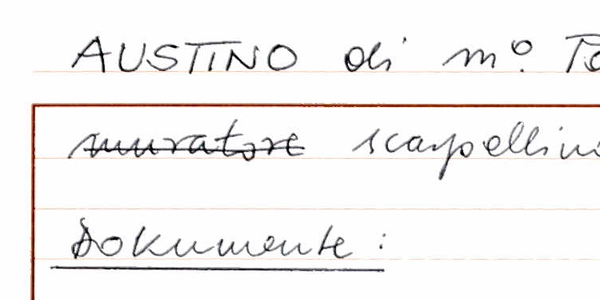 AUSTINO di m.º
muratore scarpellino
Dokumente: